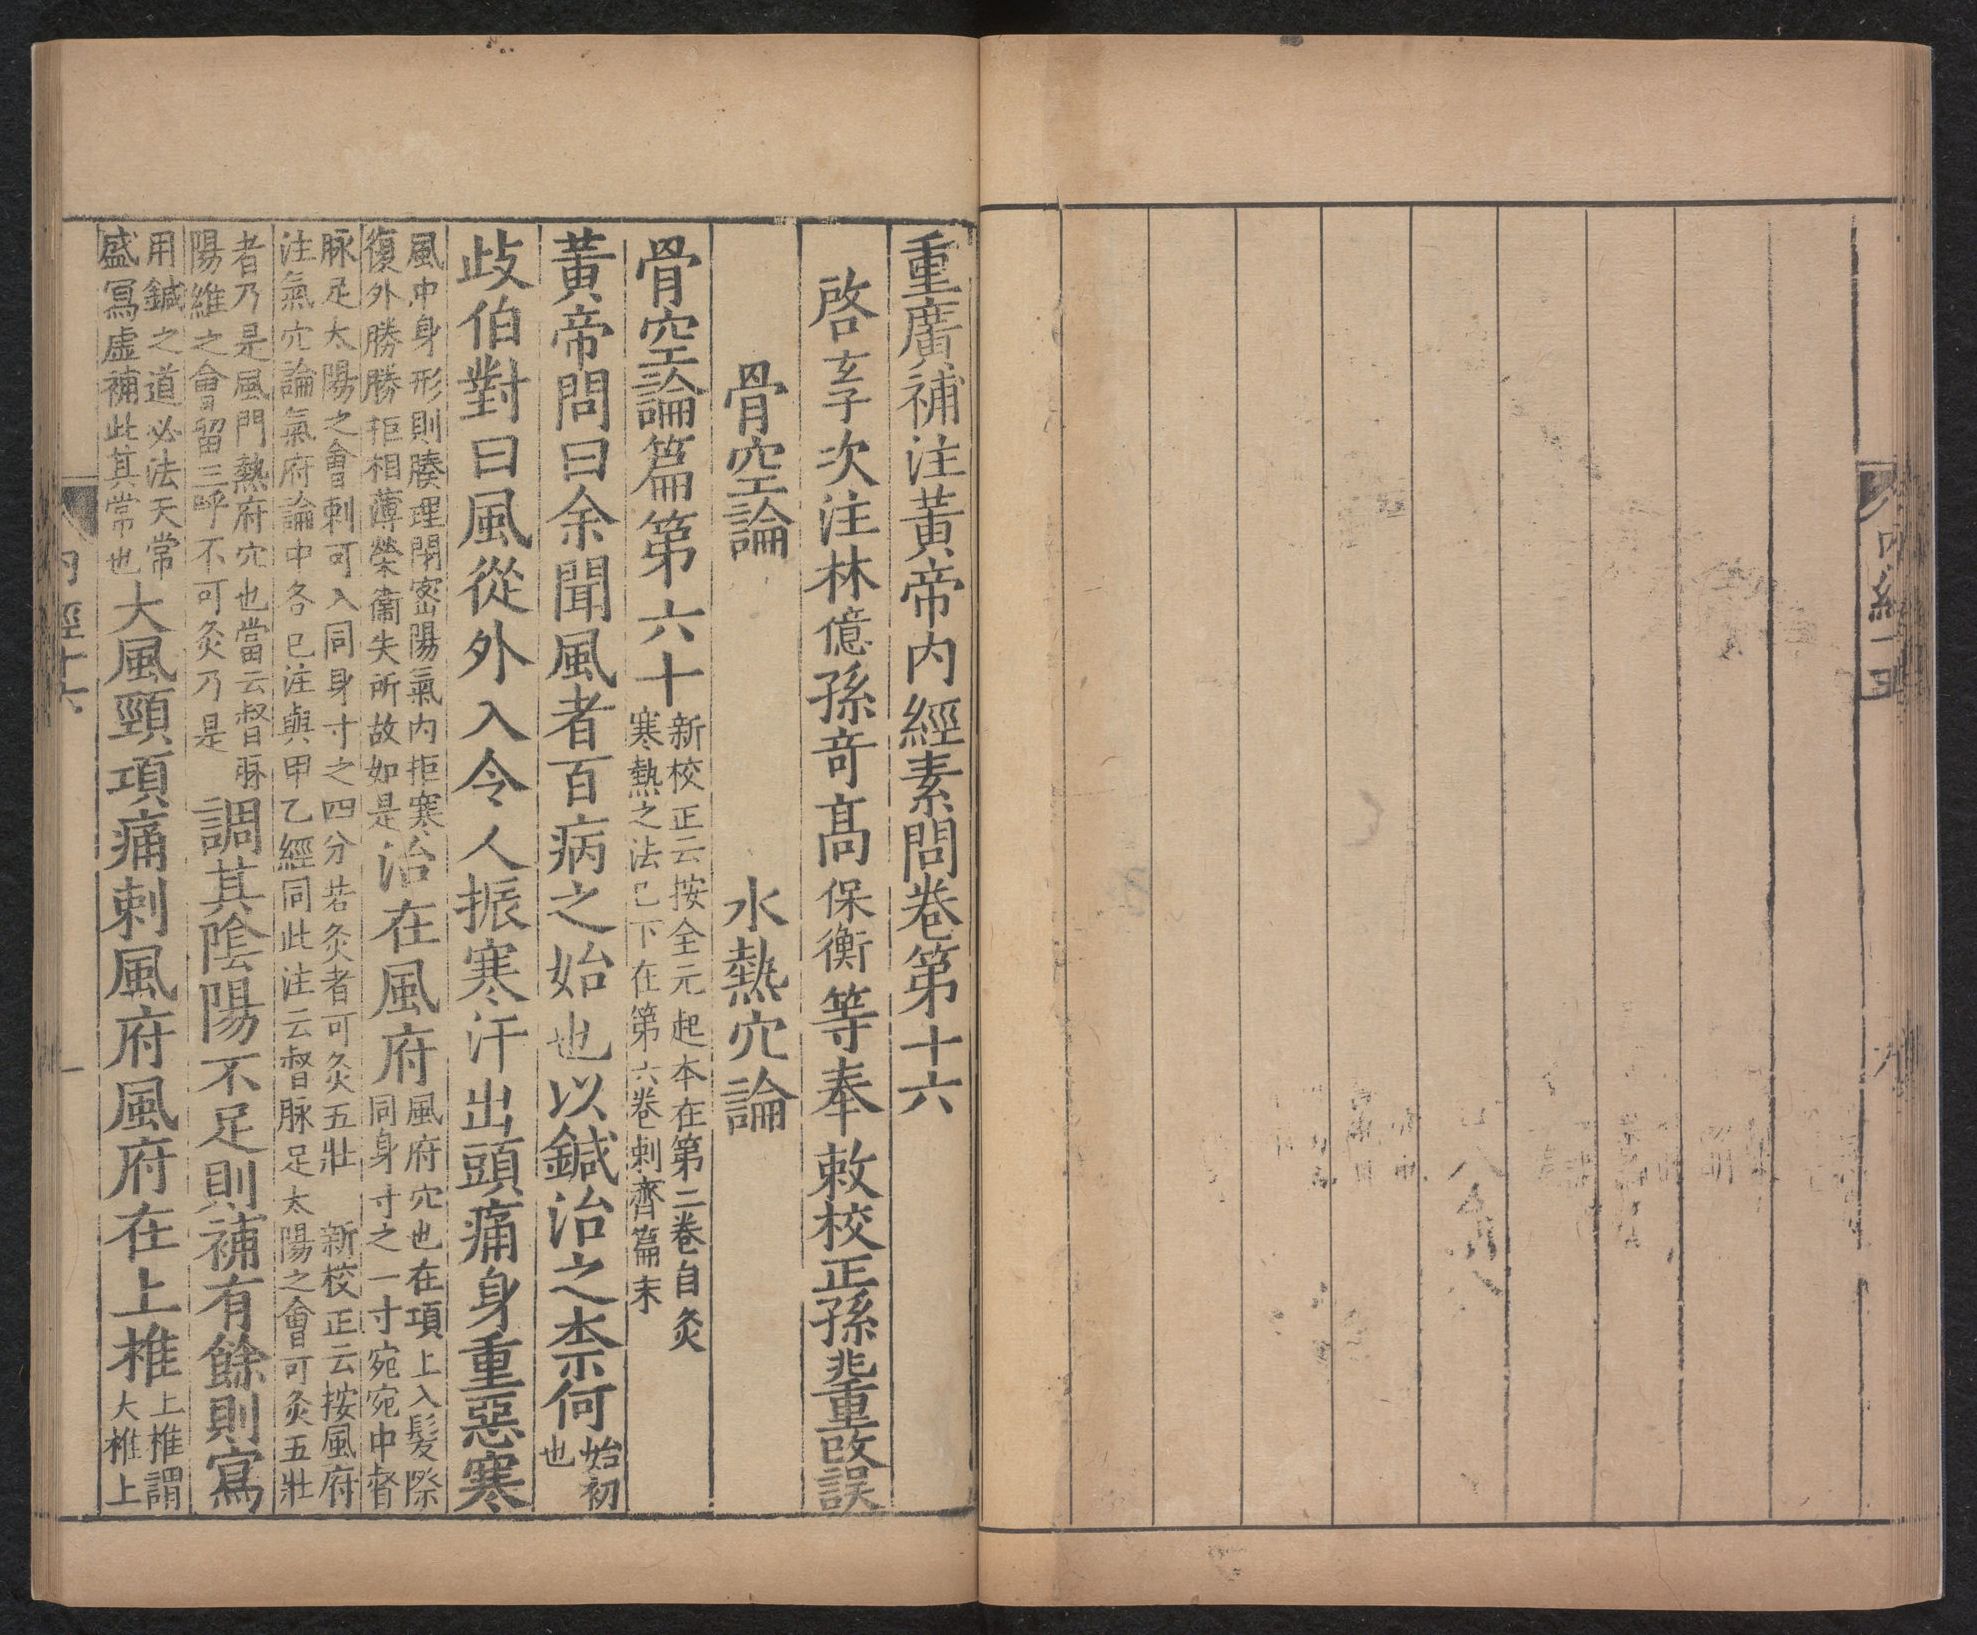 内經十五
重廣補注黃帝内經素問卷第十六
啓玄子次注林億孫竒髙保衡等奉敕校正孫兆重改誤
骨空論 水熱穴論
骨空論篇第六十
新校正云按全元起本在第二卷自灸
寒熱之法已下在第六卷刺齊篇末
黃帝問曰余聞風者百病之始也以鍼治之柰何
始初
也
歧伯對曰風從外入令人振寒汗出頭痛身重惡寒
風中身形則腠理閉密陽氣内拒寒
復外勝勝拒相薄榮衞失所故如是
治在風府
風府穴也在項上入髮際
同身寸之一寸宛宛中督
脉足太陽之會刺可入同身寸之四分若灸者可灸五壯 新校正云按風府
注氣穴論氣府論中各已注與甲乙經同此注云督脉足太陽之會可灸五壯
者乃是風門熱府穴也當云督脉
陽維之會留三呼不可灸乃是
調其陰陽不足則補有餘則寫
用鍼之道必法天常
盛寫虛補此其常也
大風頸項痛刺風府風府在上椎
上椎謂
大椎上
内經十六
一